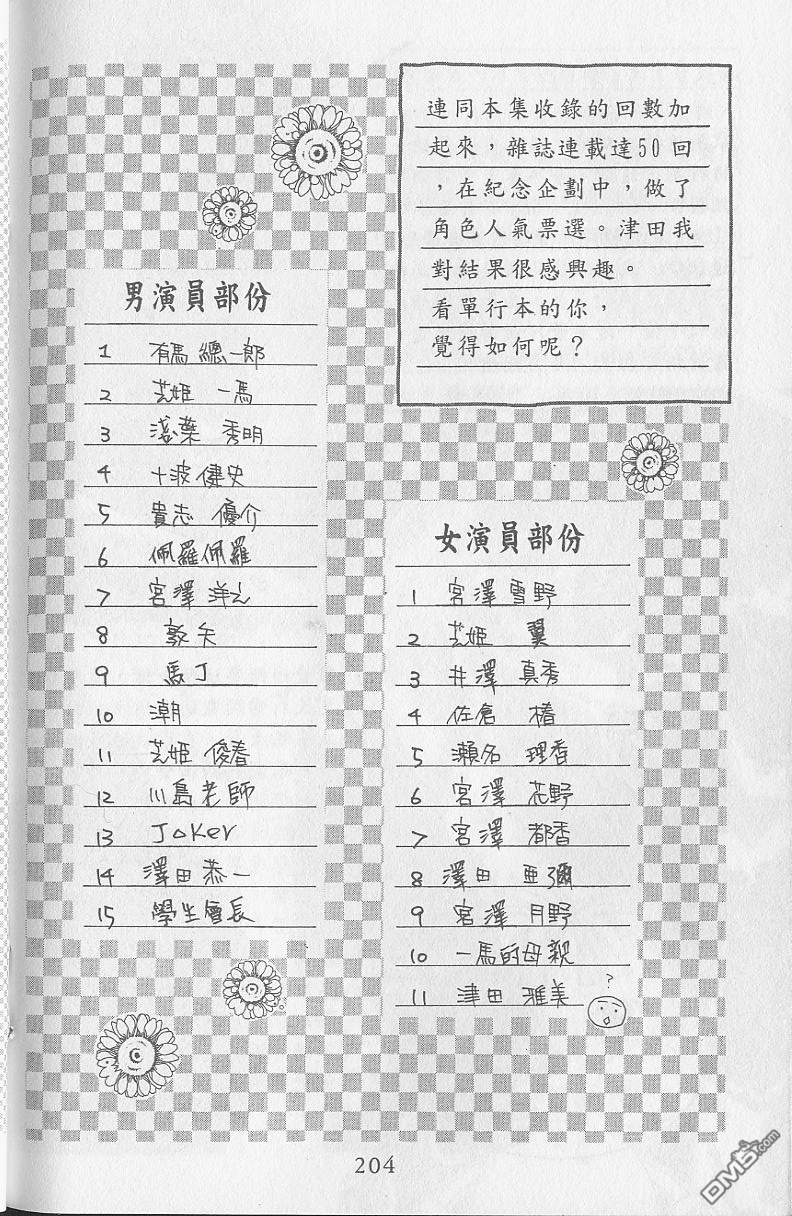 連同本集收錄的回數加
起來，雜誌連載達50回
，在紀念企劃中，做了
角色人氣票選。津田我
對結果很感興趣。
看單行本的你，
覺得如何呢？
男演員部份
1 有馬 總一郎
2 芝姫 一馬
3 淺葉 秀明
4 十波 健史
5 貴志 優介
6 佩羅佩羅
7 宮澤 洋之
8 敦矢
9 馬丁
10 潮
11 芝姫 俊春
12 川島老師
13 Joker
14 澤田 恭一
15 學生會長
女演員部份
1 宮澤 雪野
2 芝姫 翼
3 井澤 真秀
4 佐倉 椿
5 瀬名 理香
6 宮澤 花野
7 宮澤 都香
8 澤田 亜彌
9 宮澤 月野
10 一馬的母親
11 津田 雅美
?
204
DM5.com